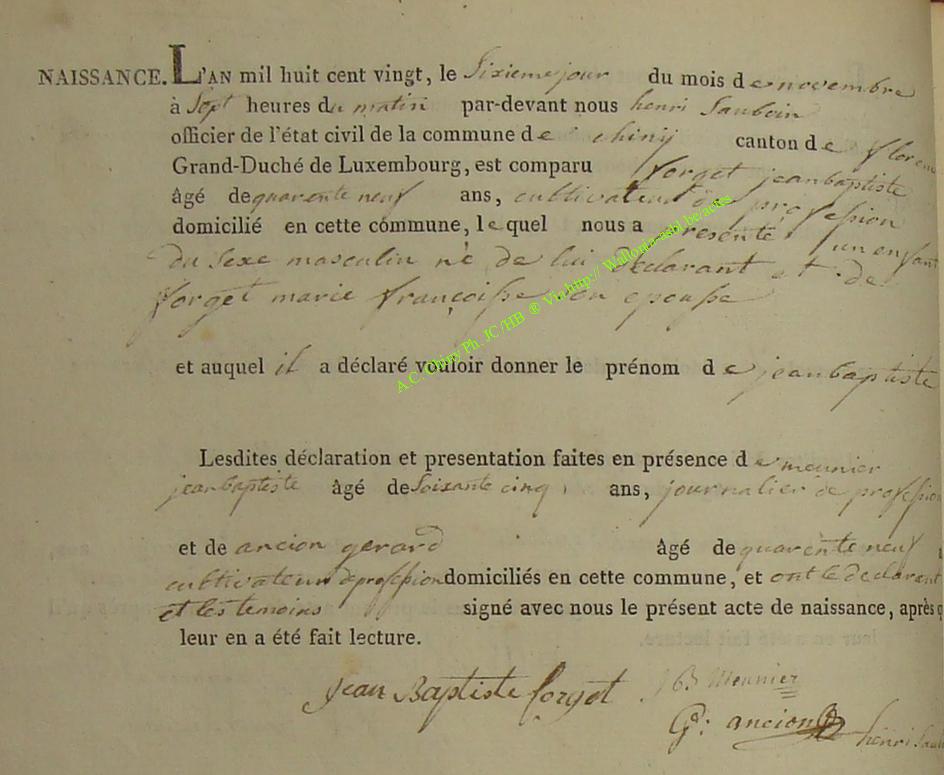 NAISSANCE. L'AN mil huit cent vingt, le Sixieme jour du mois de novembre
à Sept heures du matin par-devant nous henri Sauboin
officier de l'état civil de la commune de chiny canton de floren
Grand-Duché de Luxembourg, est comparu forget jeanbaptiste
âgé de quarente neuf ans, cultivateur de profession
domicilié en cette commune, le quel nous a presenté un enfant
du Sexe masculin né de lui declarant et de
forget marie françoisse son epousse
et auquel il a déclaré vouloir donner le prénom de jeanbaptiste
Lesdites déclaration et presentation faites en présence de meunier
jeanbaptiste âgé de Soixante cinq ans, journalier de profession
et de ancion gerard âgé de quarente neuf
cultivateur de profession domiciliés en cette commune, et ont le declarant
et les temoins signé avec nous le présent acte de naissance, après q
leur en a été fait lecture.
Jean Baptiste forget JB Meunier
G: ancion henri Saub
A.C. Chiny Ph. JC/HB ® Via http:// Wallonia-asbl.be/actes